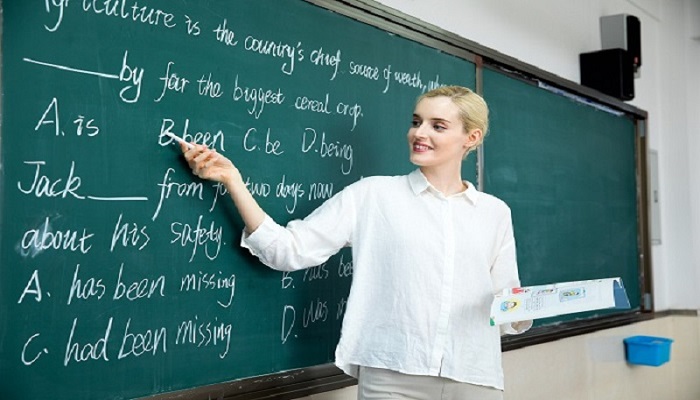 Agriculture is the country's chief source of wealth, wheat
____by far the biggest cereal crop.
A. is B. been C. be D. being
Jack____ from for two days now
about his safety.
A. has been missing B. has been
C. had been missing D. was